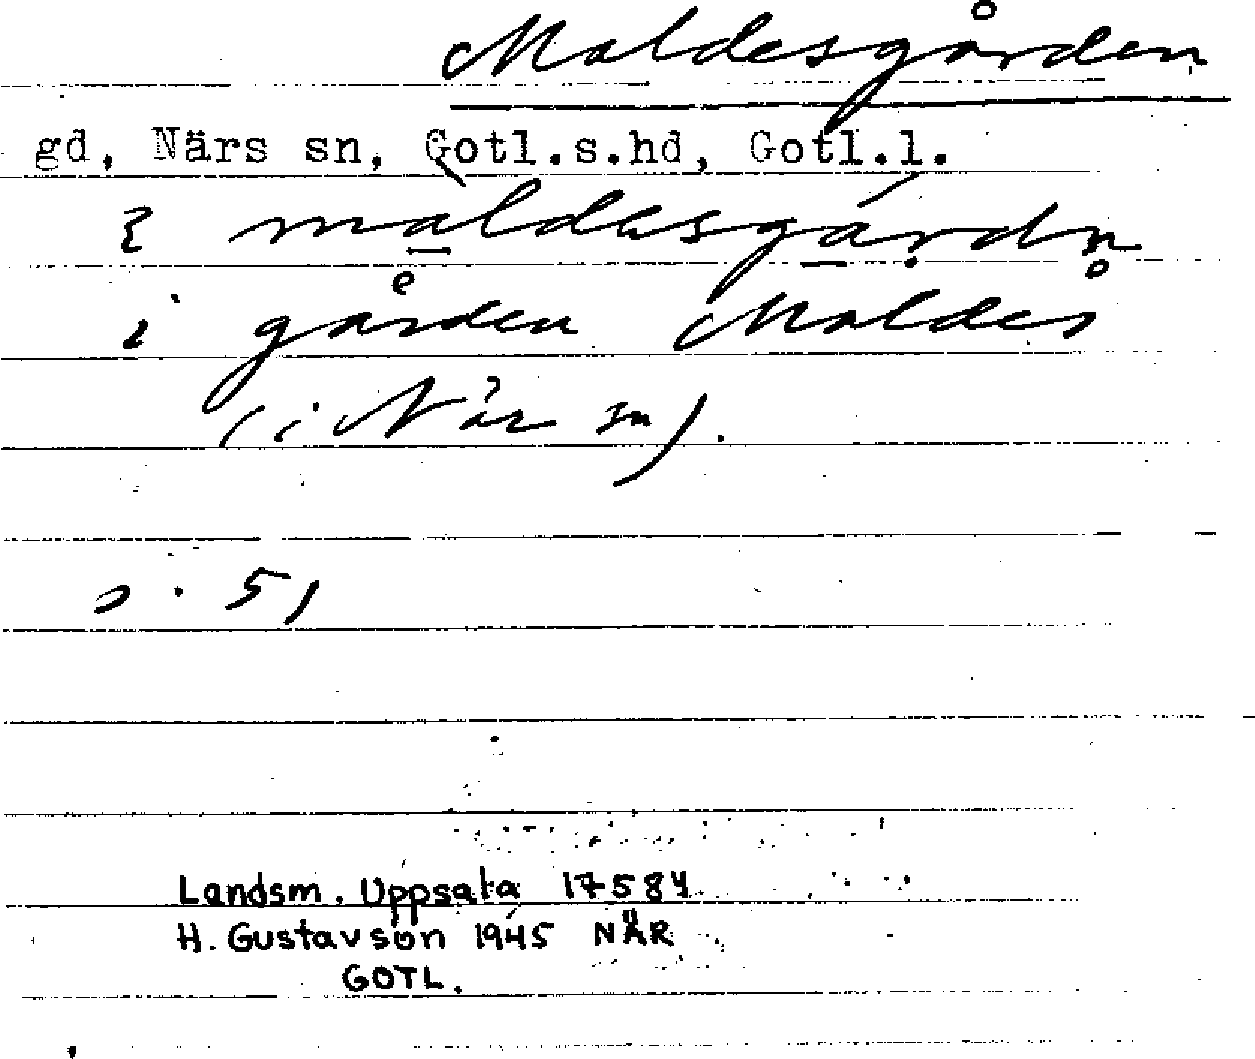 Maldesgården
gd, Närs sn, Gotl.s.hd, Gotl.l.
maldesgardn
i gården Maldes
(i När sn).
s. 51
Landsm. Uppsala 17584
H. Gustavson 1945 NÄR
GOTL.